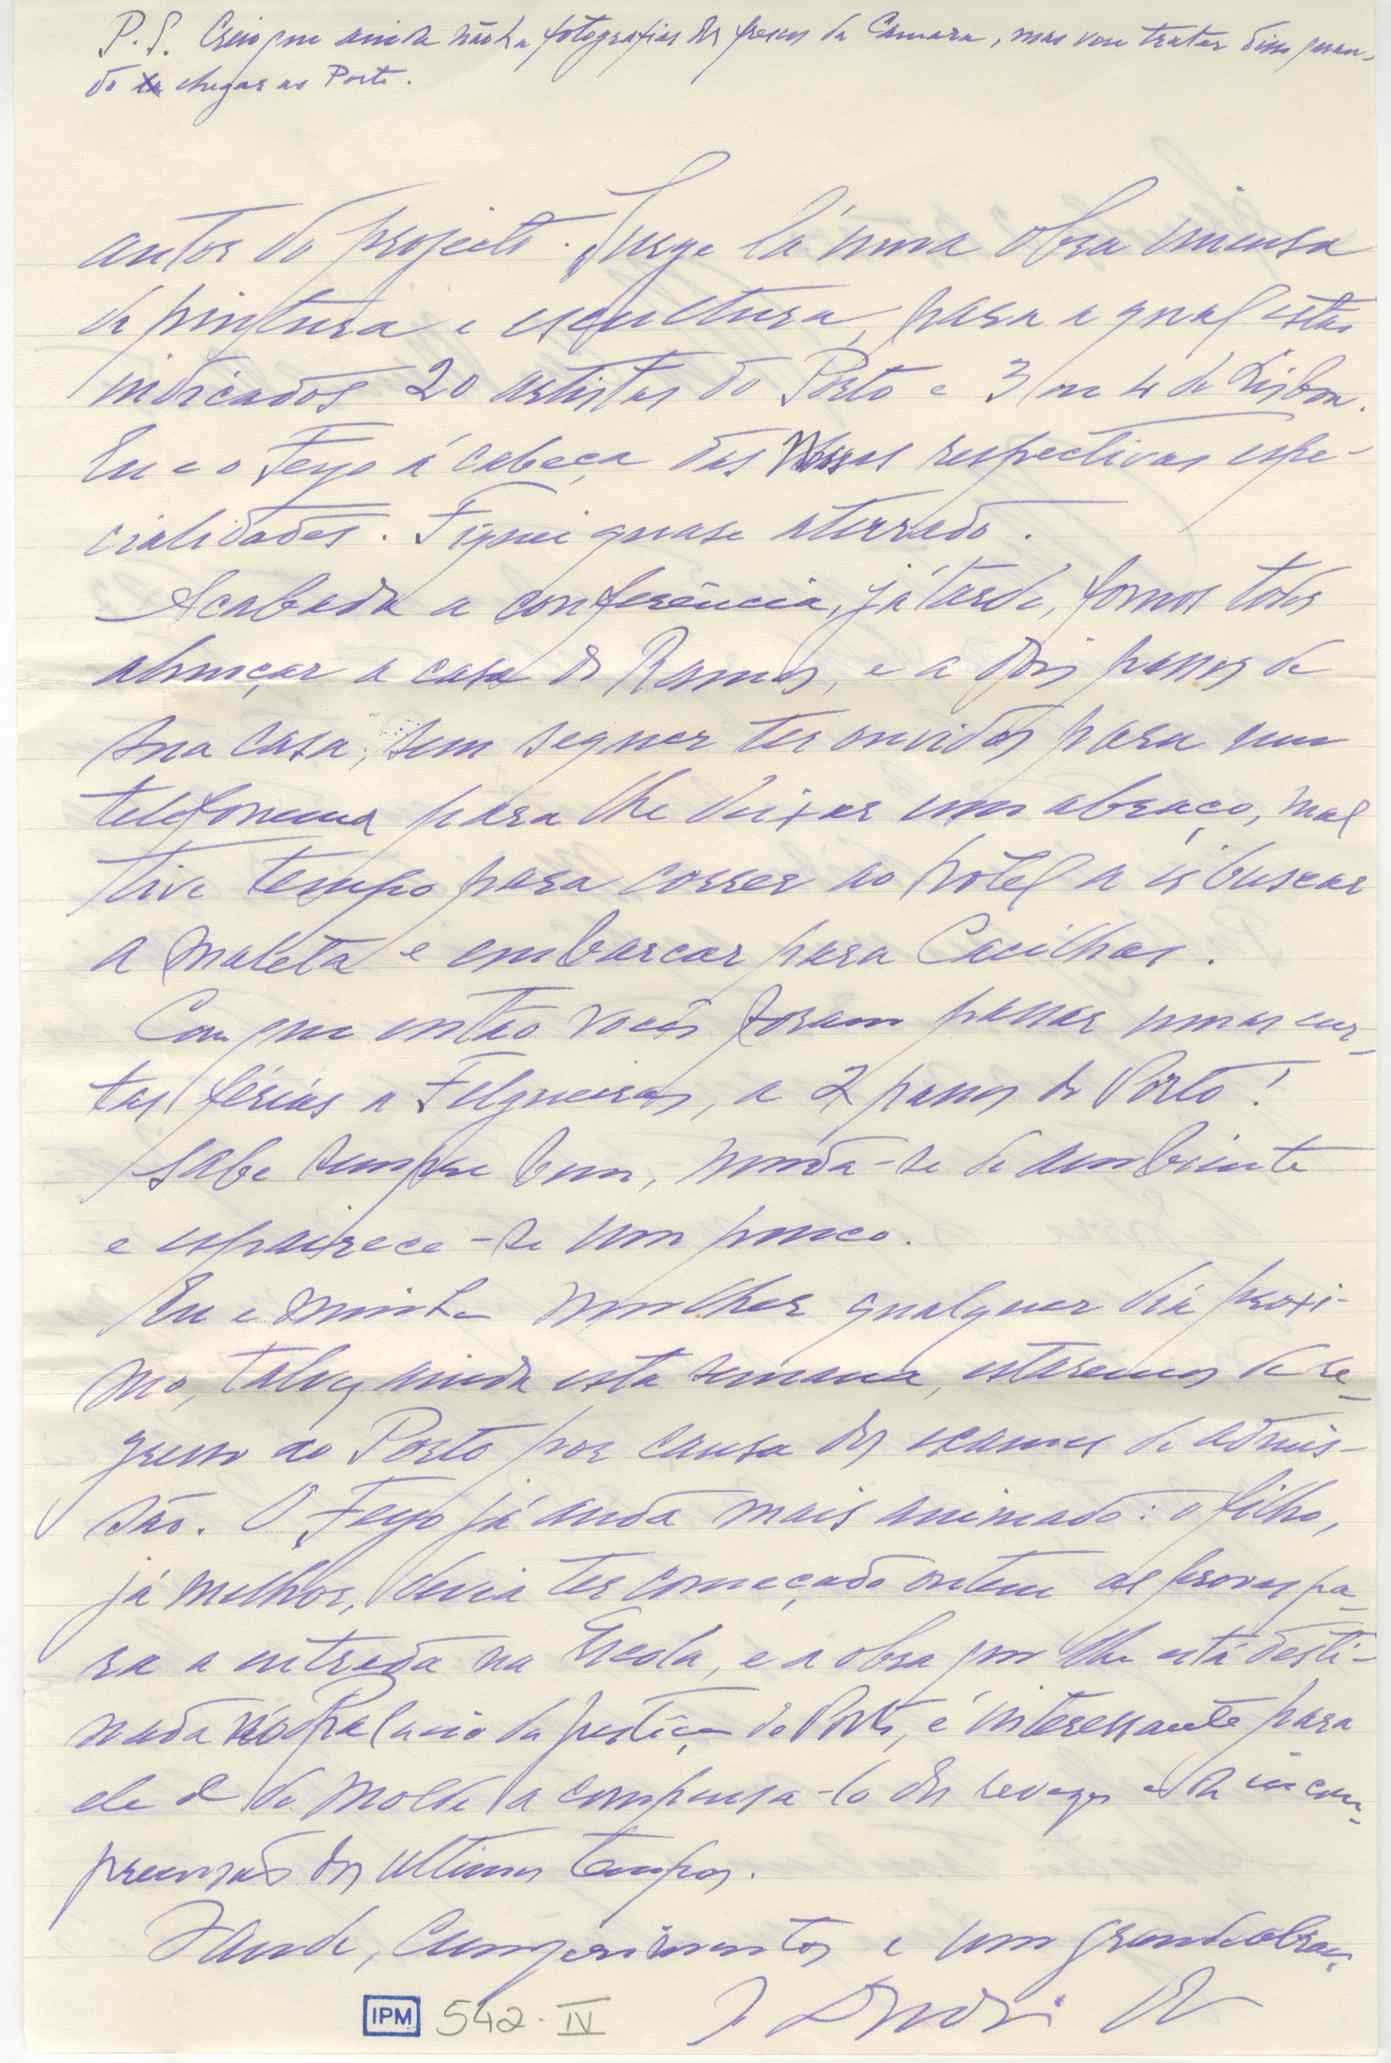 P.S. Creio que ainda não há fotografias dos frescos da Camara, mas vou tratar disso quan-
do chegar ao Porto.
autor do projecto. Surge lá uma obra imensa
de pintura e escultura, para a qual estão
indicados 20 artistas do Porto e 3 ou 4 de Lisboa.
Eu e o Feyo á cabeça das nossas respectivas espe-
cialidades. Fiquei quase aterrado.
Acabada a conferência, já tarde, fomos todos
almoçar a casa do Ramos, e a dois passos de
sua casa, sem sequer ter ouvidos para um
telefonema para lhe deixar um abraço, mal
tive tempo para correr ao hotel a ir buscar
a maleta e embarcar para Cacilhas.
Com que então vocês foram passar umas cur-
tas férias a Felgueiras, a 2 passos do Porto!
Sabe sempre bem, muda-se de ambiente
e espairece-se um pouco.
Eu e minha mulher qualquer dia proxi-
mo, talvez ainda esta semana, estaremos de re-
gresso ao Porto por causa dos exames de admis-
são. O Feyo já anda mais animado: o filho,
já melhor, devia ter começado ontem as provas pa-
ra a entrada na Escola, e a obra que lhe está desti-
nada no Palacio da Justiça do Porto, é interessante para
ele e de molde a compensa-lo dos revezes e da incom-
preensão dos ultimos tempos.
Saude, cumprimentos e um grande abraço,
IPM 542-IV